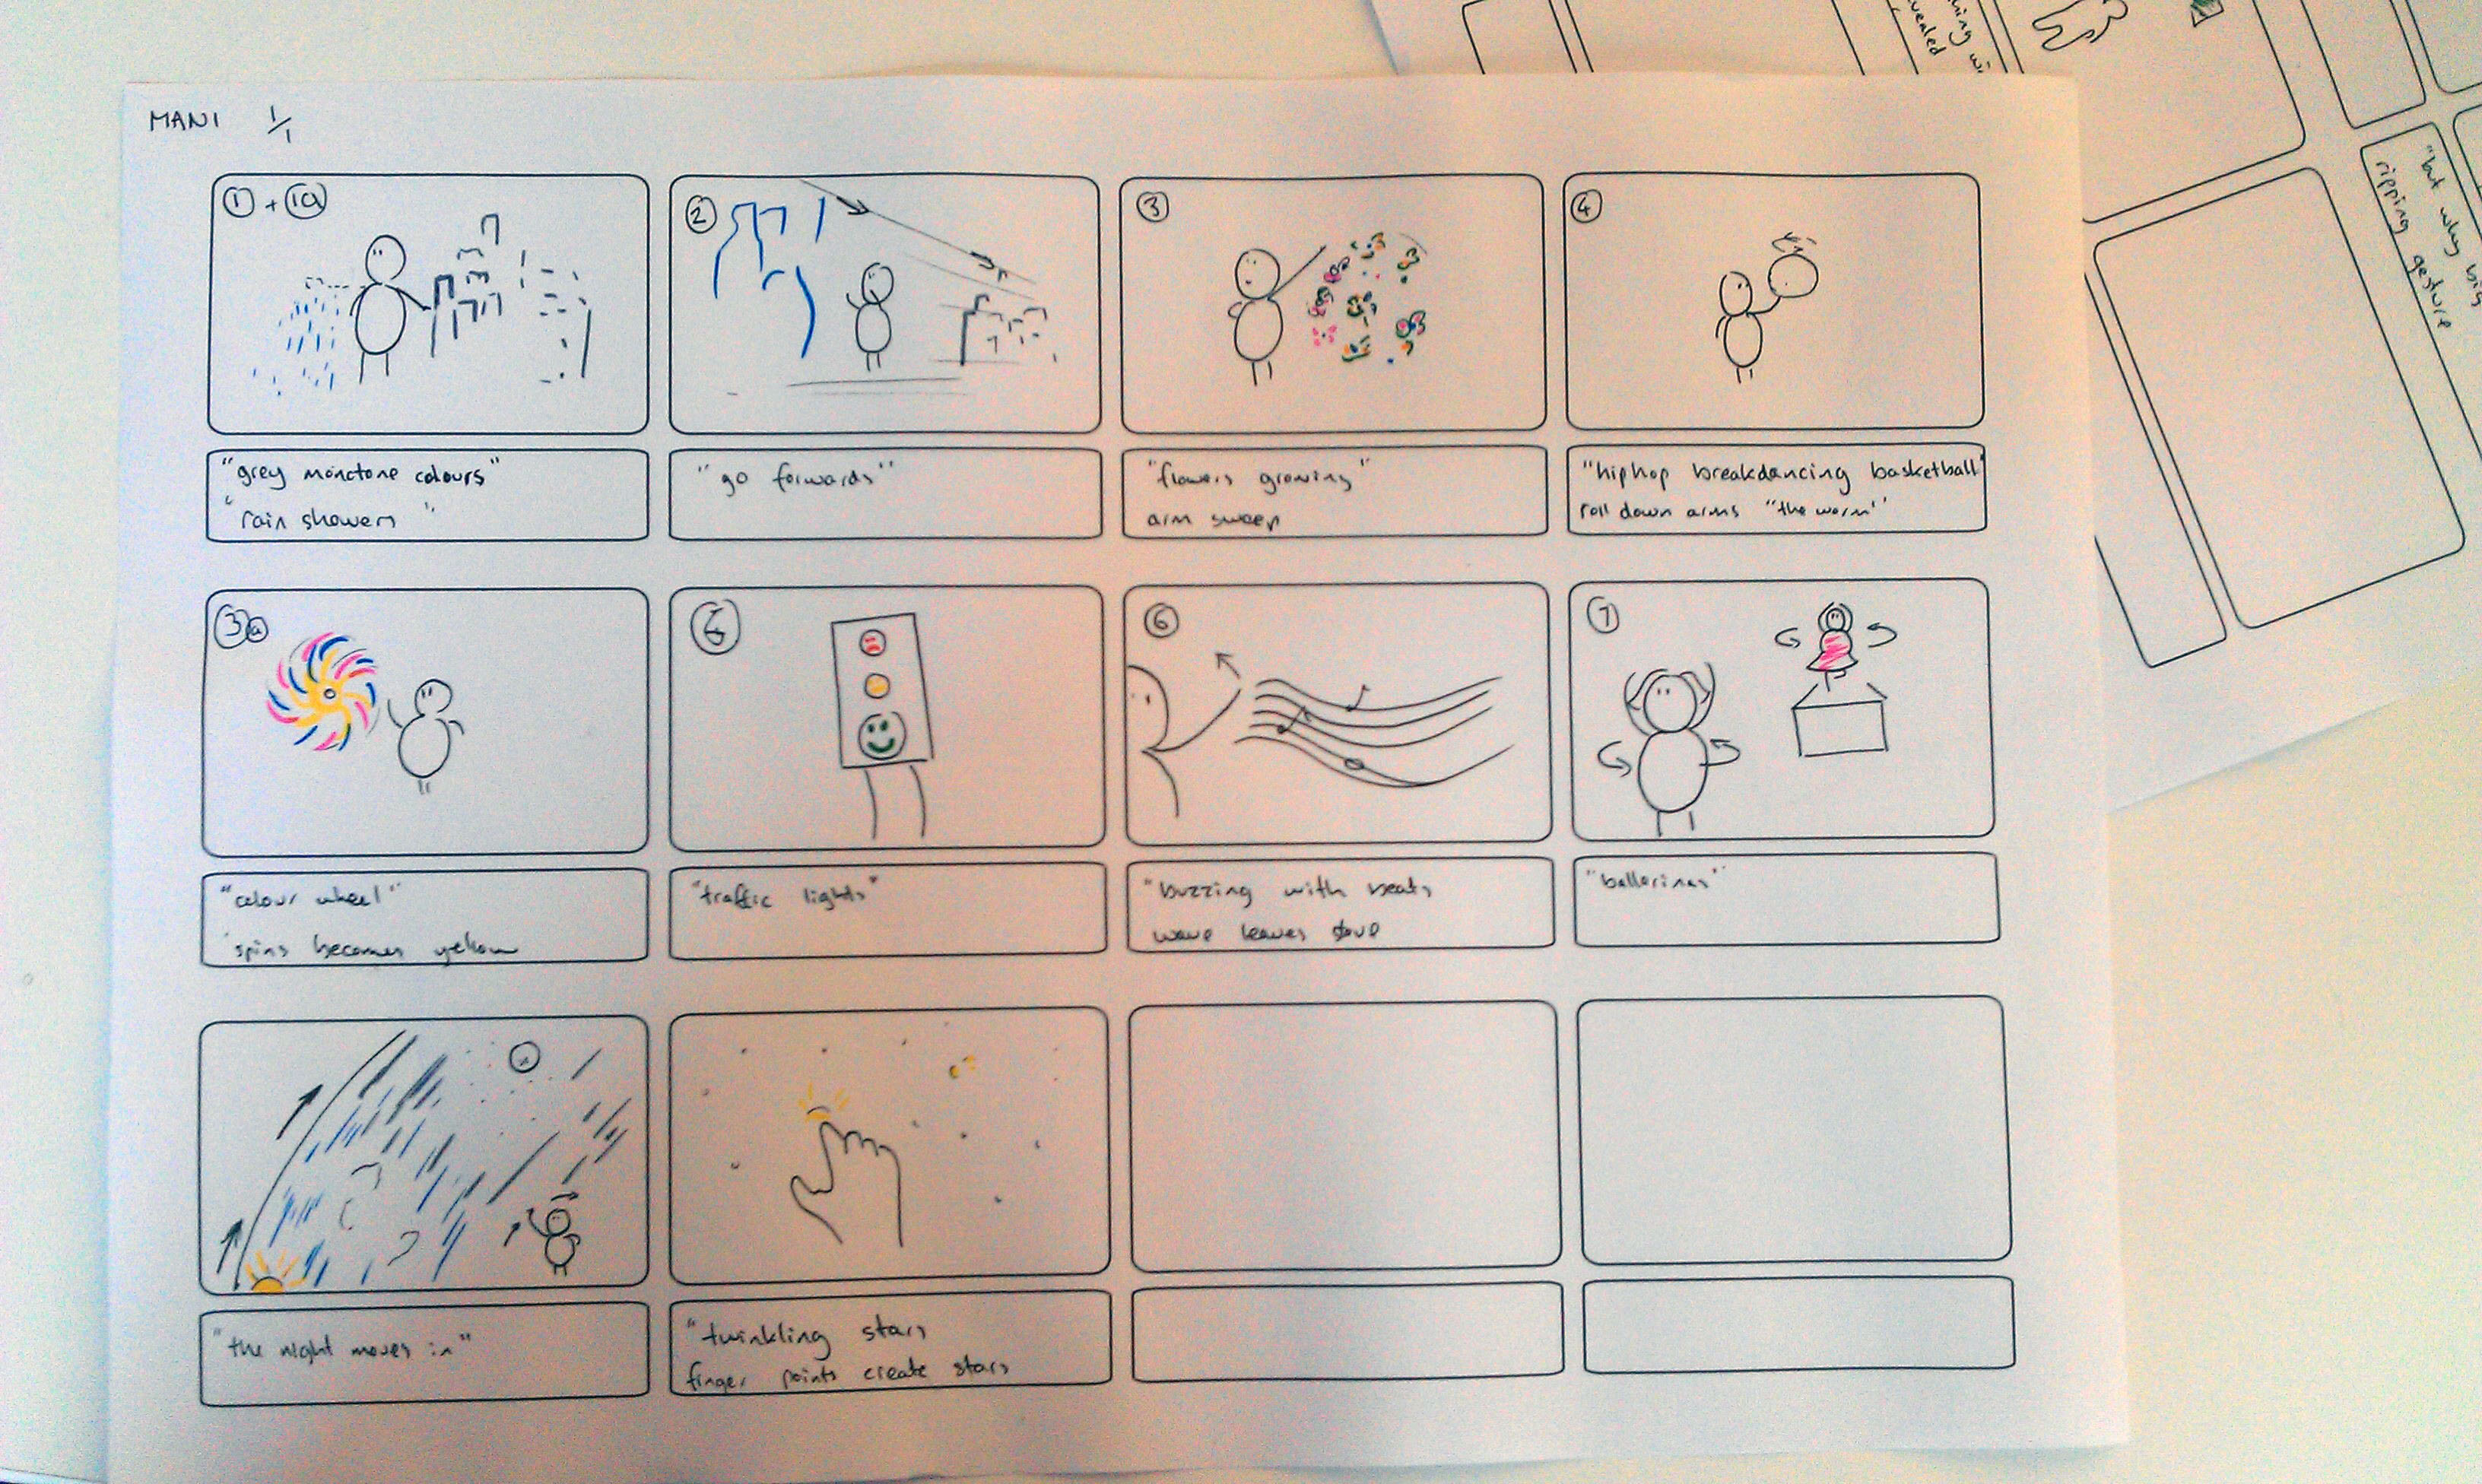 MANI 1/1
① + 1a
"grey monctone colours"
"rain showers"
②
"go forwards"
③
"flowers growing"
arm sweep
④
"hiphop breakdancing basketball
roll down arms "the worm"
3a
"colour wheel"
spins becomes yellow
"traffic lights"
⑥
"buzzing with beats
wave leaves
⑦
"ballerinas"
"the night moves in"
"twinkling stars
finger points create stars
"but why
ripping gesture